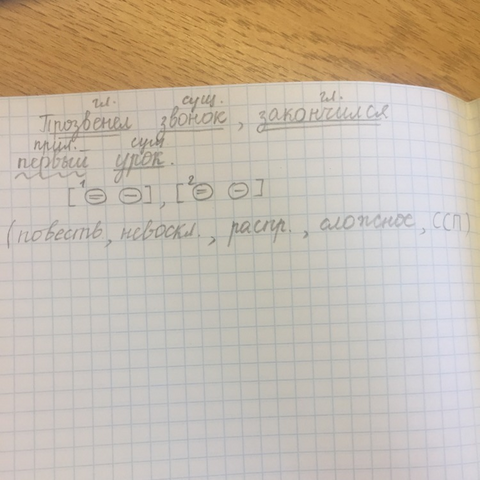 гл. сущ. гл.
Прозвенел звонок, закончился
прил. сущ
первый урок.
[ 1 ], [ 2 ]
(повеств, невоскл., распр., сложное, ССП)